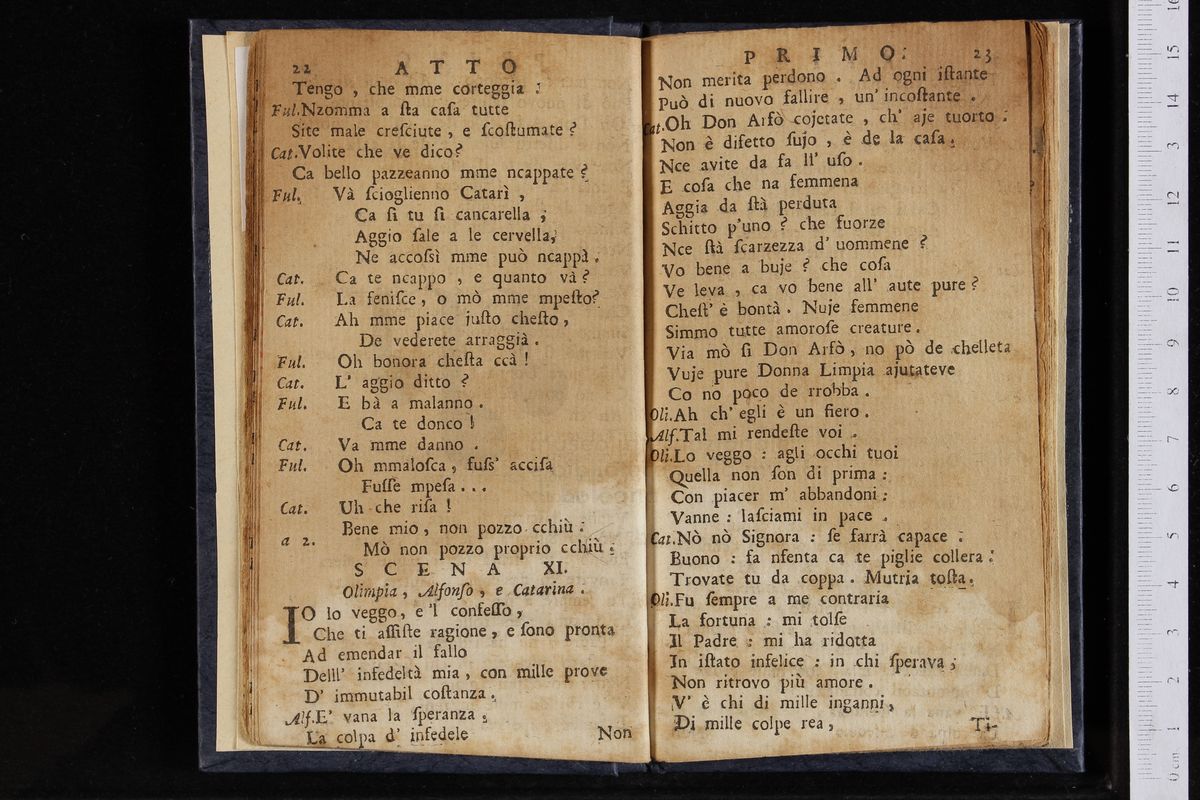 22 ATTO
Tengo , che mme corteggia :
Ful.Nzomma a ſta caſa tutte
Site male creſciute , e ſcoſtumate ?
Cat.Volite che ve dico?
Ca bello pazzeanno mme ncappate ?
Ful. Và ſcioglienno Catarì ,
Ca ſi tu ſi cancarella ;
Aggio ſale a le cervella,
Ne accoſsì mme può ncappà .
Cat. Ca te ncappo , e quanto và ?
Ful. La feniſce , o mò mme mpeſto?
Cat. Ah mme piace juſto cheſto ,
De vederete arraggià .
Ful. Oh bonora cheſta ccà !
Cat. L' aggio ditto ?
Ful. E bà a malanno .
Ca te donco !
Cat. Va mme danno .
Ful. Oh mmaloſca , fuſs' acciſa
Fuſſe mpeſa . . .
Cat. Uh che riſa !
a 2. Bene mio , non pozzo cchiù :
Mò non pozzo proprio cchiù :
SCENA XI.
Olimpia , Alfonſo , e Catarina .
IO lo veggo, e 'l confeſſo ,
Che ti aſſiſte ragione , e ſono pronta
Ad emendar il fallo
Delll' infedeltà mia , con mille prove
D' immutabil coſtanza .
Alf.E' vana la ſperanza .
La colpa d' infedele
Non
PRIMO. 23
Non merita perdono . Ad ogni iſtante
Può di nuovo fallire , un' incoſtante .
Cat.Oh Don Arfò cojetate , ch' aje tuorto :
Non è difetto ſujo , è de la caſa .
Nce avite da fa ll' uſo .
E coſa che na femmena
Aggia da ſtà perduta
Schitto p'uno ? che fuorze
Nce ſtà ſcarzezza d' uommene ?
Vo bene a buje ? che coſa
Ve leva , ca vo bene all' aute pure ?
Cheſt' è bontà . Nuje femmene
Simmo tutte amoroſe creature .
Via mò ſi Don Arfò , no pò de chelleta
Vuje pure Donna Limpia ajutateve
Co no poco de rrobba .
Oli.Ah ch' egli è un fiero .
Alf.Tal mi rendeſte voi .
Oli.Lo veggo : agli occhi tuoi
Quella non ſon di prima :
Con piacer m' abbandoni :
Vanne : laſciami in pace .
Cat.Nò nò Signora : ſe farrà capace :
Buono : fa nfenta ca te piglie collera :
Trovate tu da coppa . Mutria toſta .
Oli.Fu ſempre a me contraria
La fortuna : mi tolſe
Il Padre : mi ha ridotta
In iſtato infelice : in chi ſperava ;
Non ritrovo più amore .
V' è chi di mille inganni ,
Di mille colpe rea ,
Ti-
0 cm 1 2 3 4 5 6 7 8 9 10 11 12 13 14 15 16